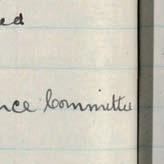 ed
nce Committee